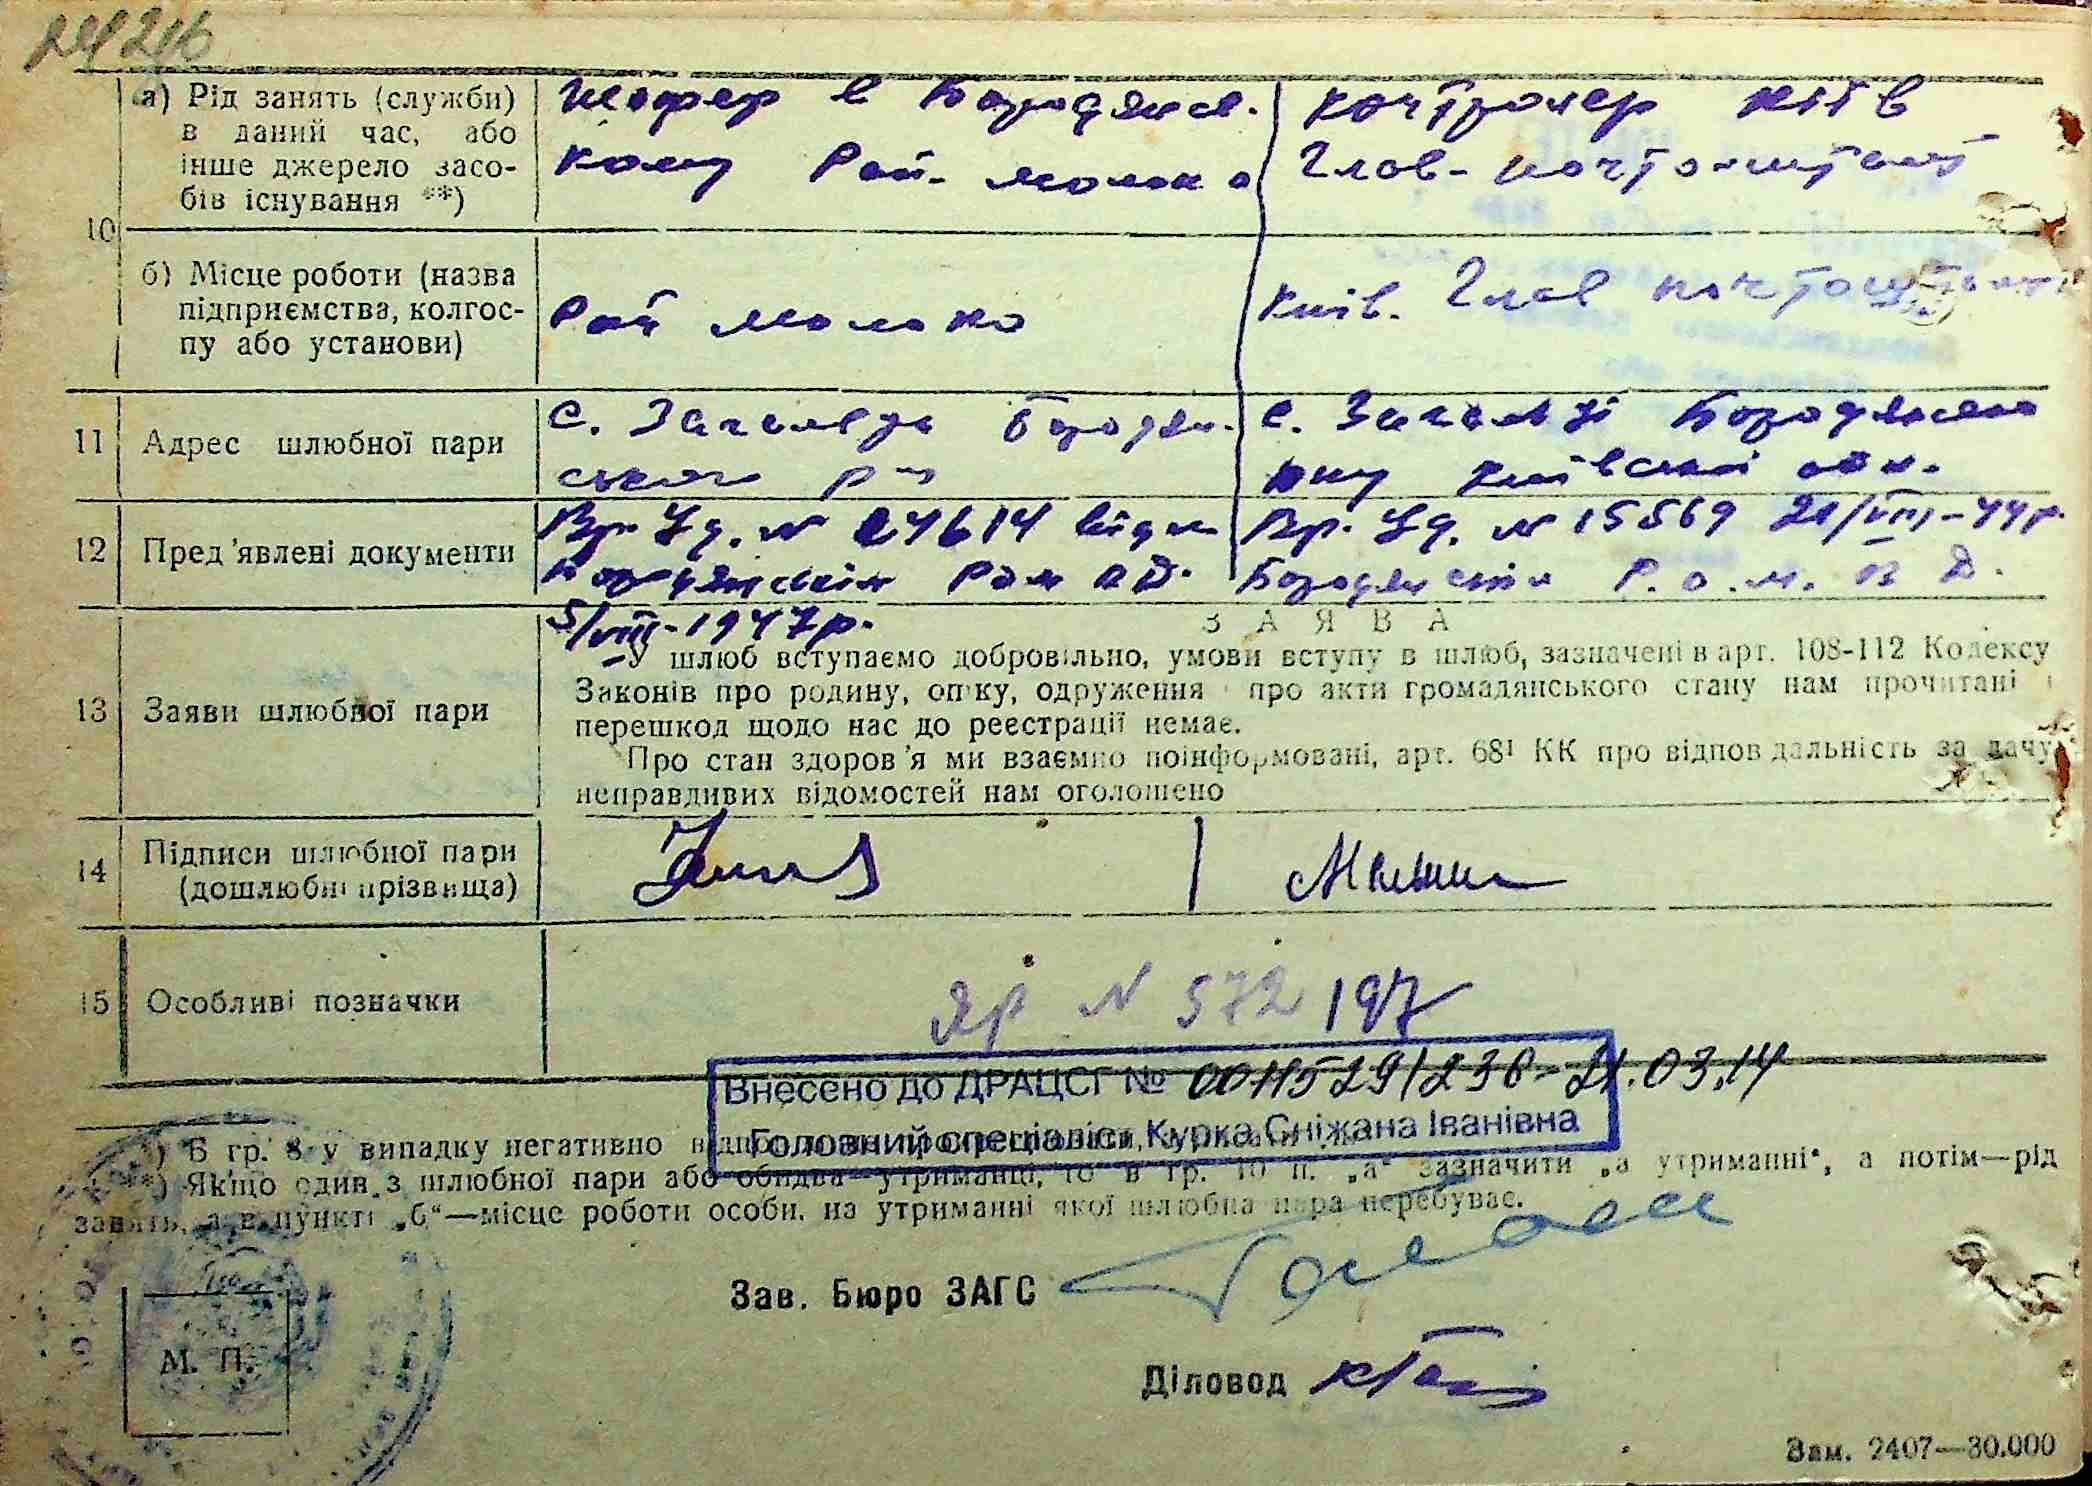 10
а) Рід занять (служби)
в даний час, або
інше джерело засо-
бів існування **)
Шофер в Бородянсь-
кому Рай-молоко
контролер
Глав-почтомтамт
б) Місце роботи (назва
підприємства, колгос-
пу або установи)
Рай молоко
Київ. Глав почтомтамт
11
Адрес шлюбної пари
с. Загальці Бородян-
ського р-ну
с. Загальці Бородянсько
Київської обл.
12
Пред'явлені документи
Вр. Уд. № 24614
5/VIII-1947р.
Вр. Уд. № 15569 21/VIII-44р.
Бородянськім Р.о.м.В.Д.
13
Заяви шлюбної пари
ЗАЯВА
У шлюб вступаємо добровільно, умови вступу в шлюб, зазначені в арт. 108-112 Кодексу
Законів про родину, опіку, одруження про акти громадянського стану нам прочитані і
перешкод щодо нас до реєстрації немає.
Про стан здоров'я ми взаємно поінформовані, арт. 68¹ КК про відповідальність за дачу
неправдивих відомостей нам оголошено
14
Підписи шлюбної пари
(дошлюбні прізвища)
15
Особливі позначки
№ 572197
Внесено до ДРАЦСГ № 0011529/1230-21.03.14
Головний спеціаліст Курка Сніжана Іванівна
*) В гр. 8 у випадку негативно
**) Якщо один з шлюбної пари або обидва—утриманці, то в гр. 10 п. „а“ зазначити „а утриманні“, а потім—рід
занять, а в пункті „б“—місце роботи особи, на утриманні якої шлюбна пара перебуває.
Зав. Бюро ЗАГС
М. П.
Діловод
Зам. 2407—30.000